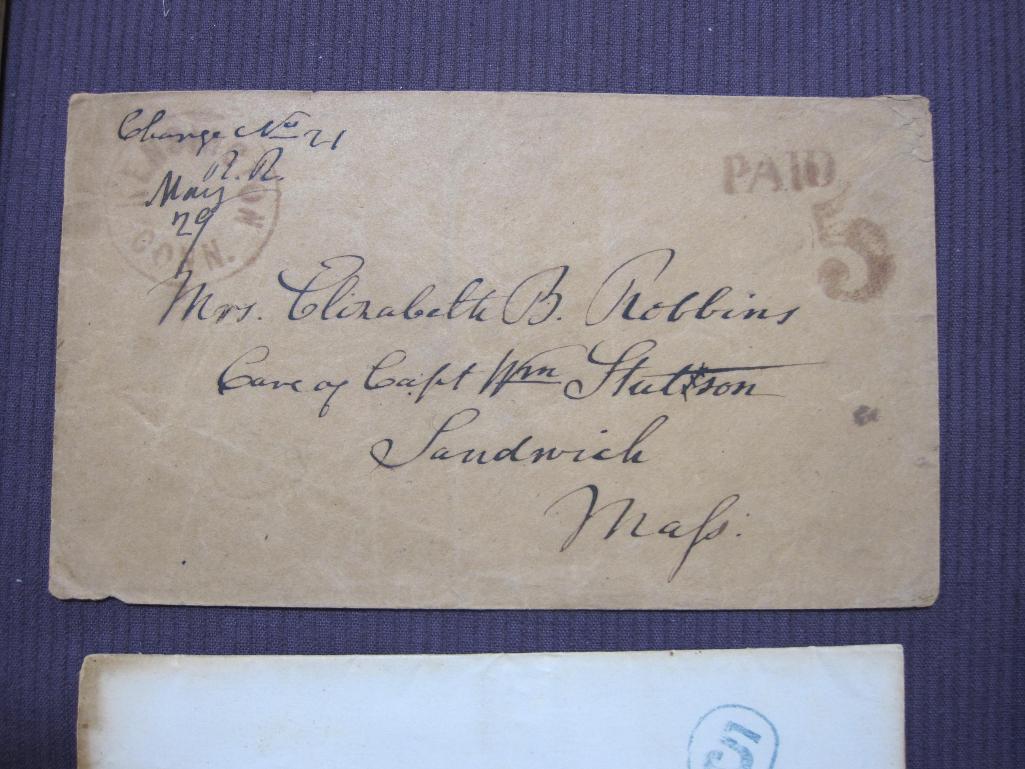 Charge No 21
R. R.
May
29
PAID
5
CONN.
Mrs. Elizabeth B. Robbins
Care of Capt Wm Stutson
Sandwich
Maſs.
5